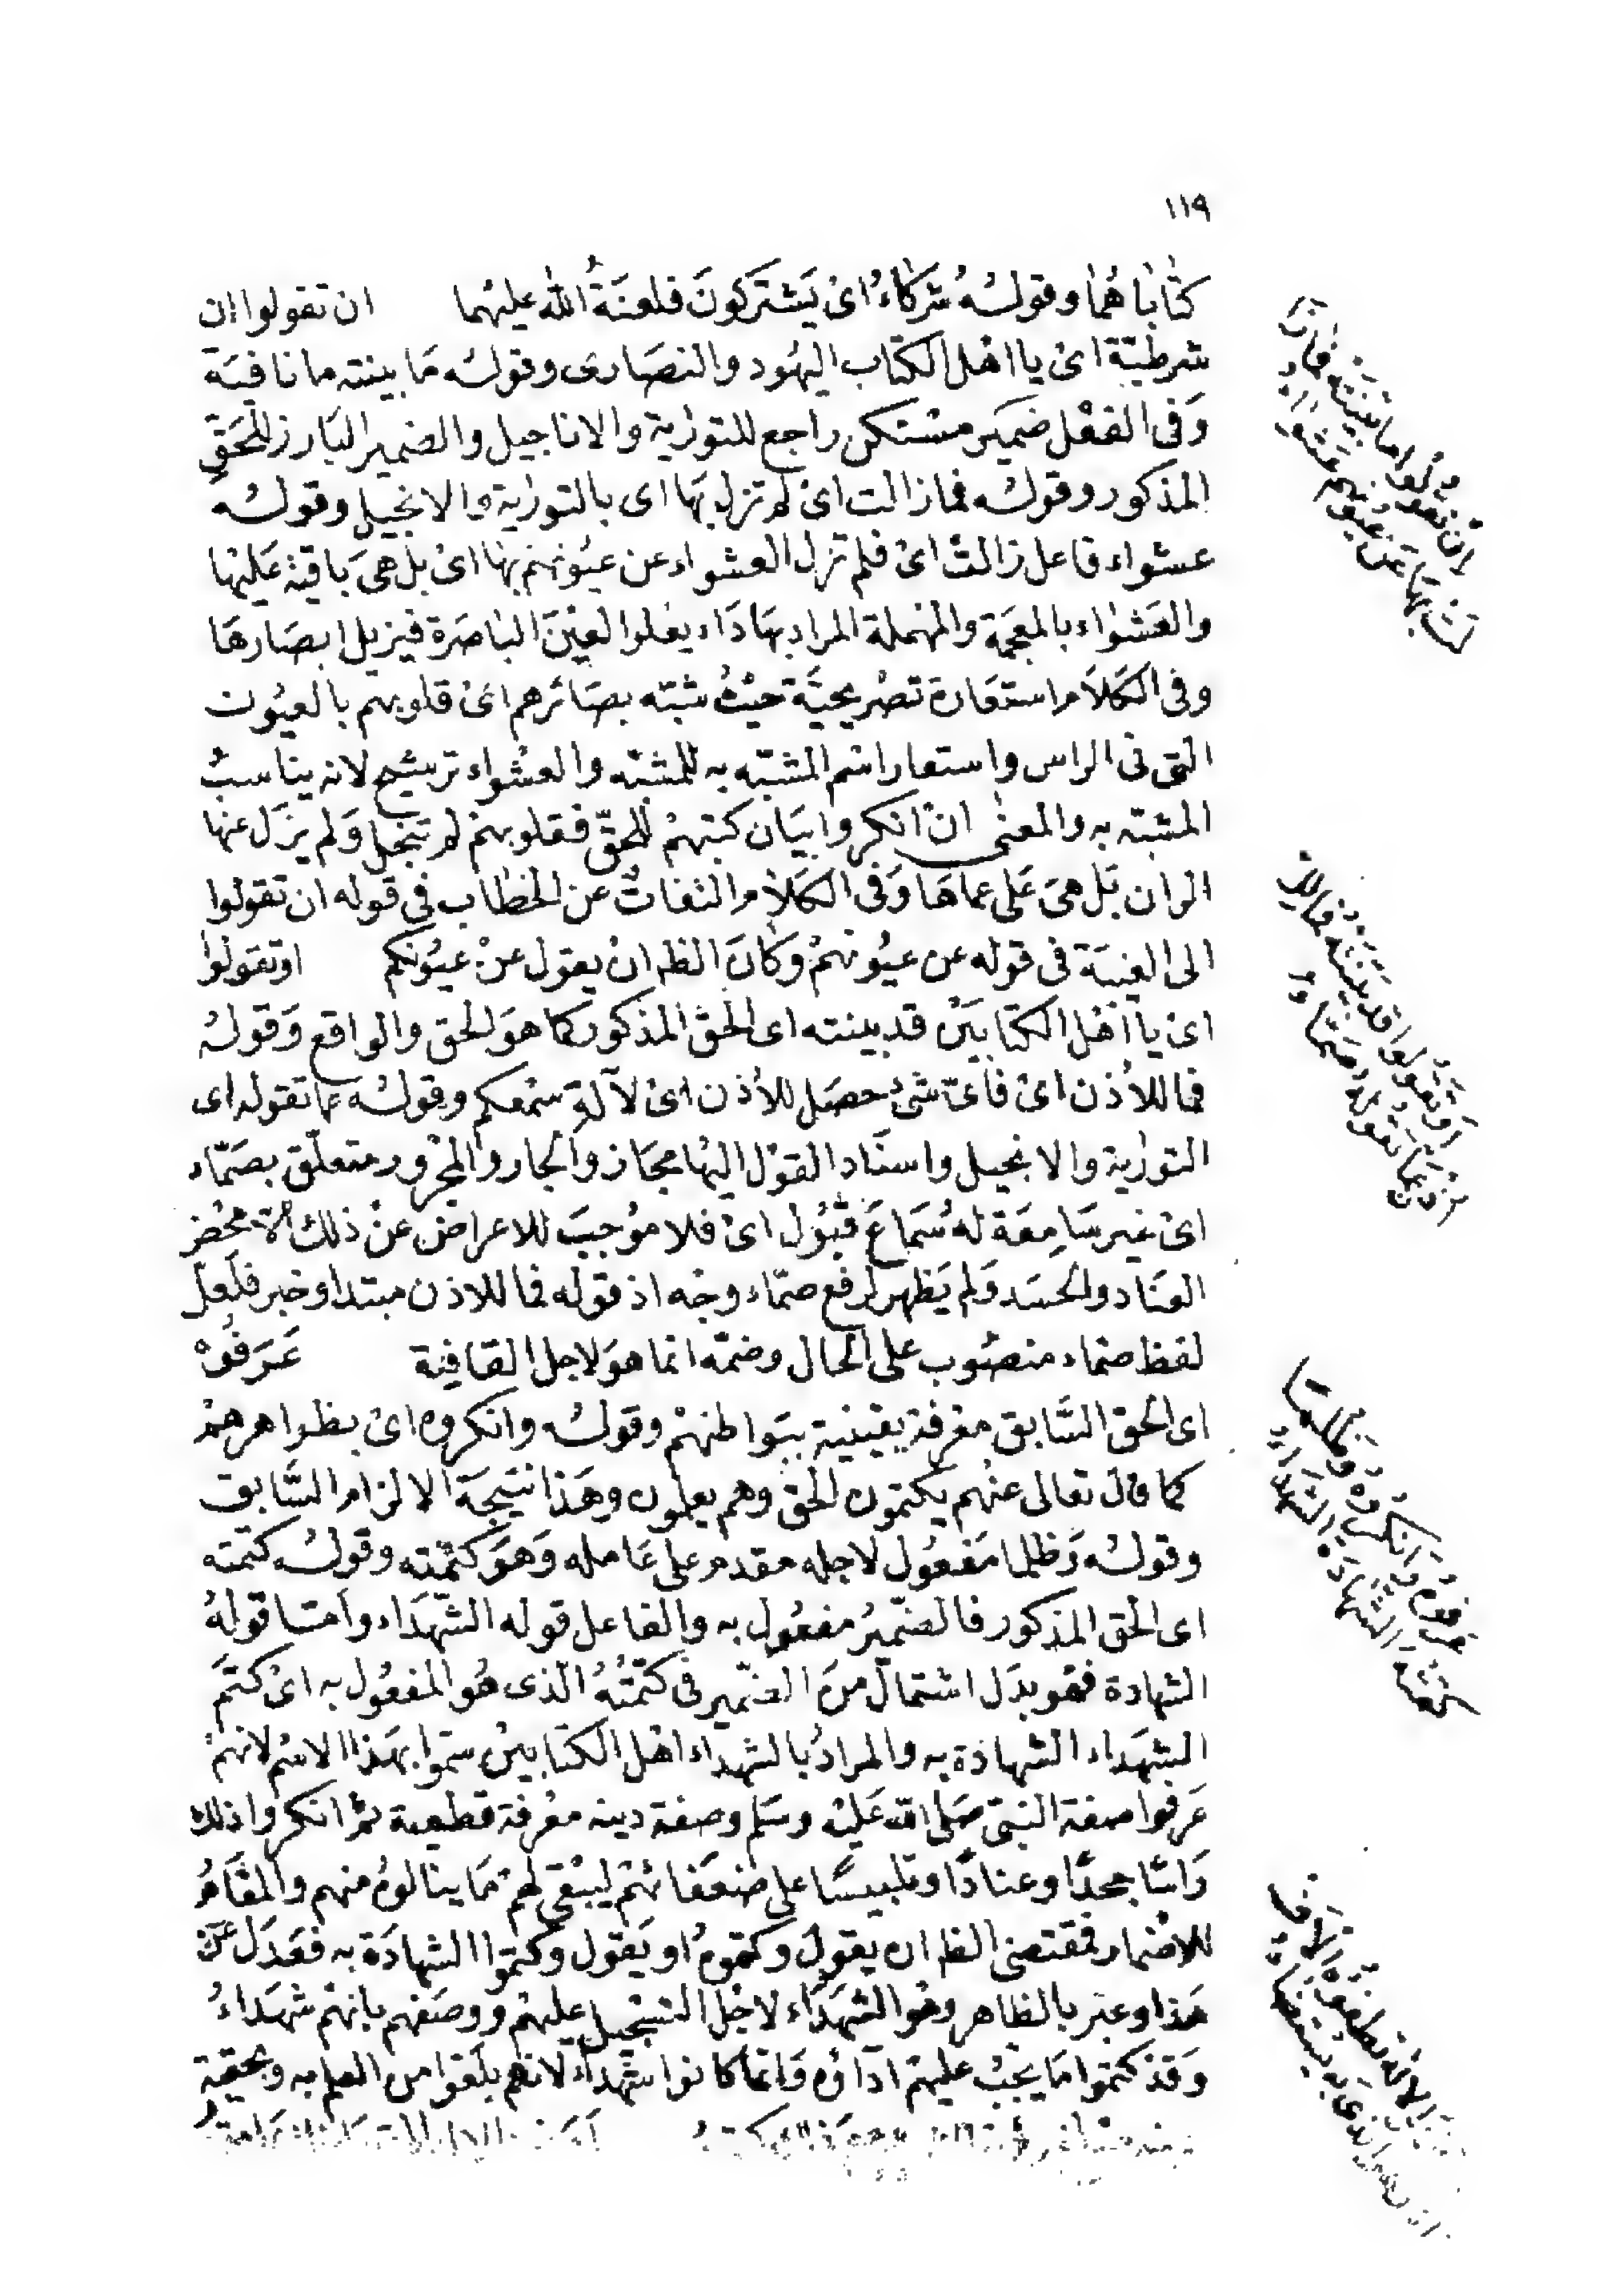 ١١٩
كتاباهما وقوله شركاء اى يشتركون فلعنة الله عليهما ان تقولوا ان
شرطية اى يا اهل الكتاب اليهود والنصارى وقوله ما بينته ما نافية
وفى الفعل ضمير مستكن راجع للتورية والاناجيل والضمير البارز للحق
المذكور وقوله فما زالت اى لم تزل بها اى بالتورية والانجيل وقوله
عشواء فاعل زالت اى فلم تزل العشواء عن عيونهم بها اى بل هى باقية عليها
والعشواء بالمعجمة والمهملة المراد بها داء يعلوا العين الباصرة فيزيل ابصارها
وفى الكلام استعارة تصريحية حيث شبه بصائرهم اى قلوبهم بالعيون
التى فى الراس واستعار اسم المشبه به للمشبه والعشواء ترشيح لانه يناسب
المشبه به والمعنى ان انكروا بيان كتبهم للحق فقلوبهم لم تنجل ولم يزل عنها
الران بل هى على عماها وفى الكلام التفات عن الخطاب فى قوله ان تقولوا
الى الغيبة فى قوله عن عيونهم وكان الظه ان يقول عن عيونكم او تقولوا
اى يا اهل الكتابين قد بينته اى الحق المذكور كما هو الحق والواقع وقوله
فما للأذن اى فاى شئ حصل للأذن اى لآلة سمعكم وقوله عما تقوله اى
التورية والانجيل واسناد القول اليها مجاز والجار والمجرور متعلق بصماء
اى غير سامعة له سماع قبول اى فلا موجب للاعراض عن ذلك الا محض
العناد والحسد ولم يظهر لرفع صماء وجه اذ قوله فما للاذن مبتدا وخبر فلعل
لفظ صماء منصوب على الحال وضمه انما هو لاجل القافية عرفوه
اى الحق السابق معرفة يقينية ببواطنهم وقوله وانكروه اى بظواهرهم
كما قال تعالى عنهم يكتمون الحق وهم يعلمون وهذا نتيجة الالزام السابق
وقوله وظلما مفعول لاجله مقدم على عامله وهو كتمته وقوله كتمته
اى الحق المذكور فالضمير مفعول به والفاعل قوله الشهداء واما قوله
الشهادة فهو بدل اشتمال من الضمير فى كتمته الذى هو المفعول به اى كتم
الشهداء الشهادة به والمراد بالشهداء اهل الكتابين سموا بهذا الاسم لانهم
عرفوا صفة النبى صلى الله عليه وسلم وصفة دينه معرفة قطعية ثم انكروا ذلك
راسا جحدا وعنادا وتلبيسا على ضعفائهم ليبقى لهم ما ينالوه منهم والمقام
للاضمار فمقتضى الظه ان يقول وكتموه او يقول وكتموا الشهادة به فعدل عن
هذا وعبر بالظاهر وهو الشهداء لاجل التسجيل عليهم ووصفهم بانهم شهداء
وقد كتموا ما يجب عليهم اداؤه وانما كانوا شهداء لانهم بلغوا من العلم به وبحقيقة
ان تقولوا ما بينته فما زا
لت بها عن عيونهم عشواء
او تقولوا قد بينته فما للأ
ذن عما تقوله صماء
عرفوه وانكروه وظلما
كتمته الشهادة الشهداء